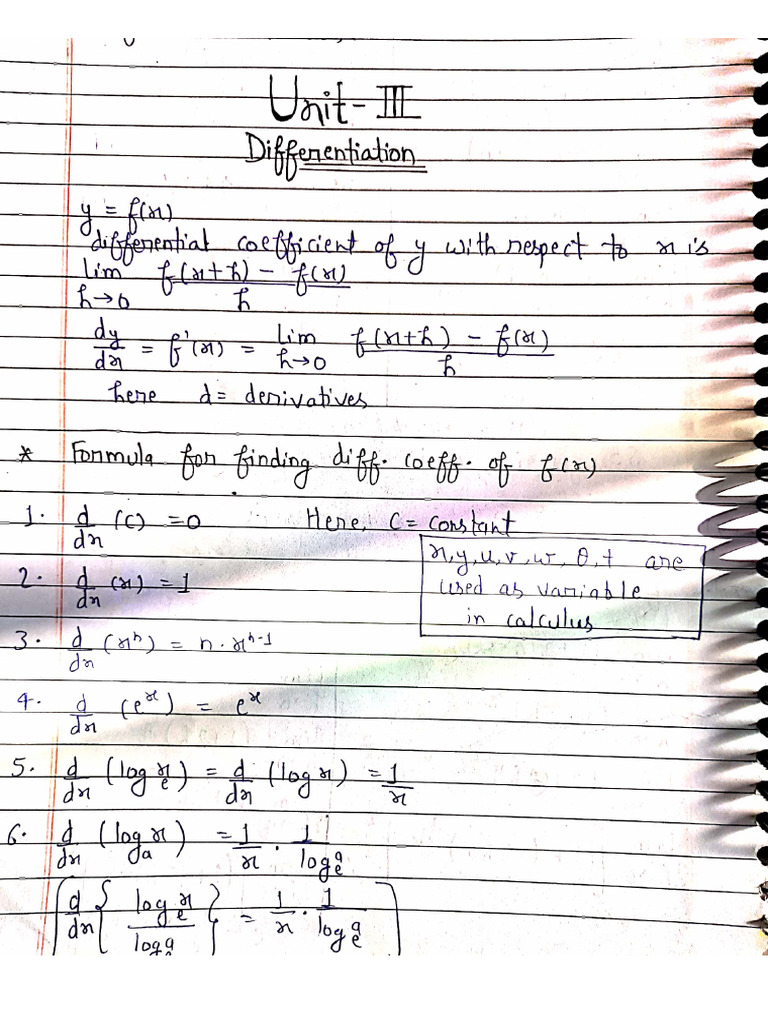 Unit-III
Differentiation
y = f(x)
differential coefficient of y with respect to x is
lim h→0 f(x+h) - f(x) / h
dy/dx = f'(x) = lim h→0 f(x+h) - f(x) / h
here d = derivatives
* Formula for finding diff. coeff. of f(x)
1. d/dx (c) = 0 Here, C = constant
x, y, u, v, w, θ, t are
used as variable
in calculus
2. d/dx (x) = 1
3. d/dx (xⁿ) = n·xⁿ⁻¹
4. d/dx (eˣ) = eˣ
5. d/dx (logₑx) = d/dx (log x) = 1/x
6. d/dx (logₐx) = 1/x · 1/logₑa
[d/dx {logₑx / logₑa} = 1/x · 1/logₑa]